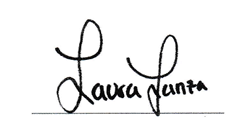 Laura Lanza